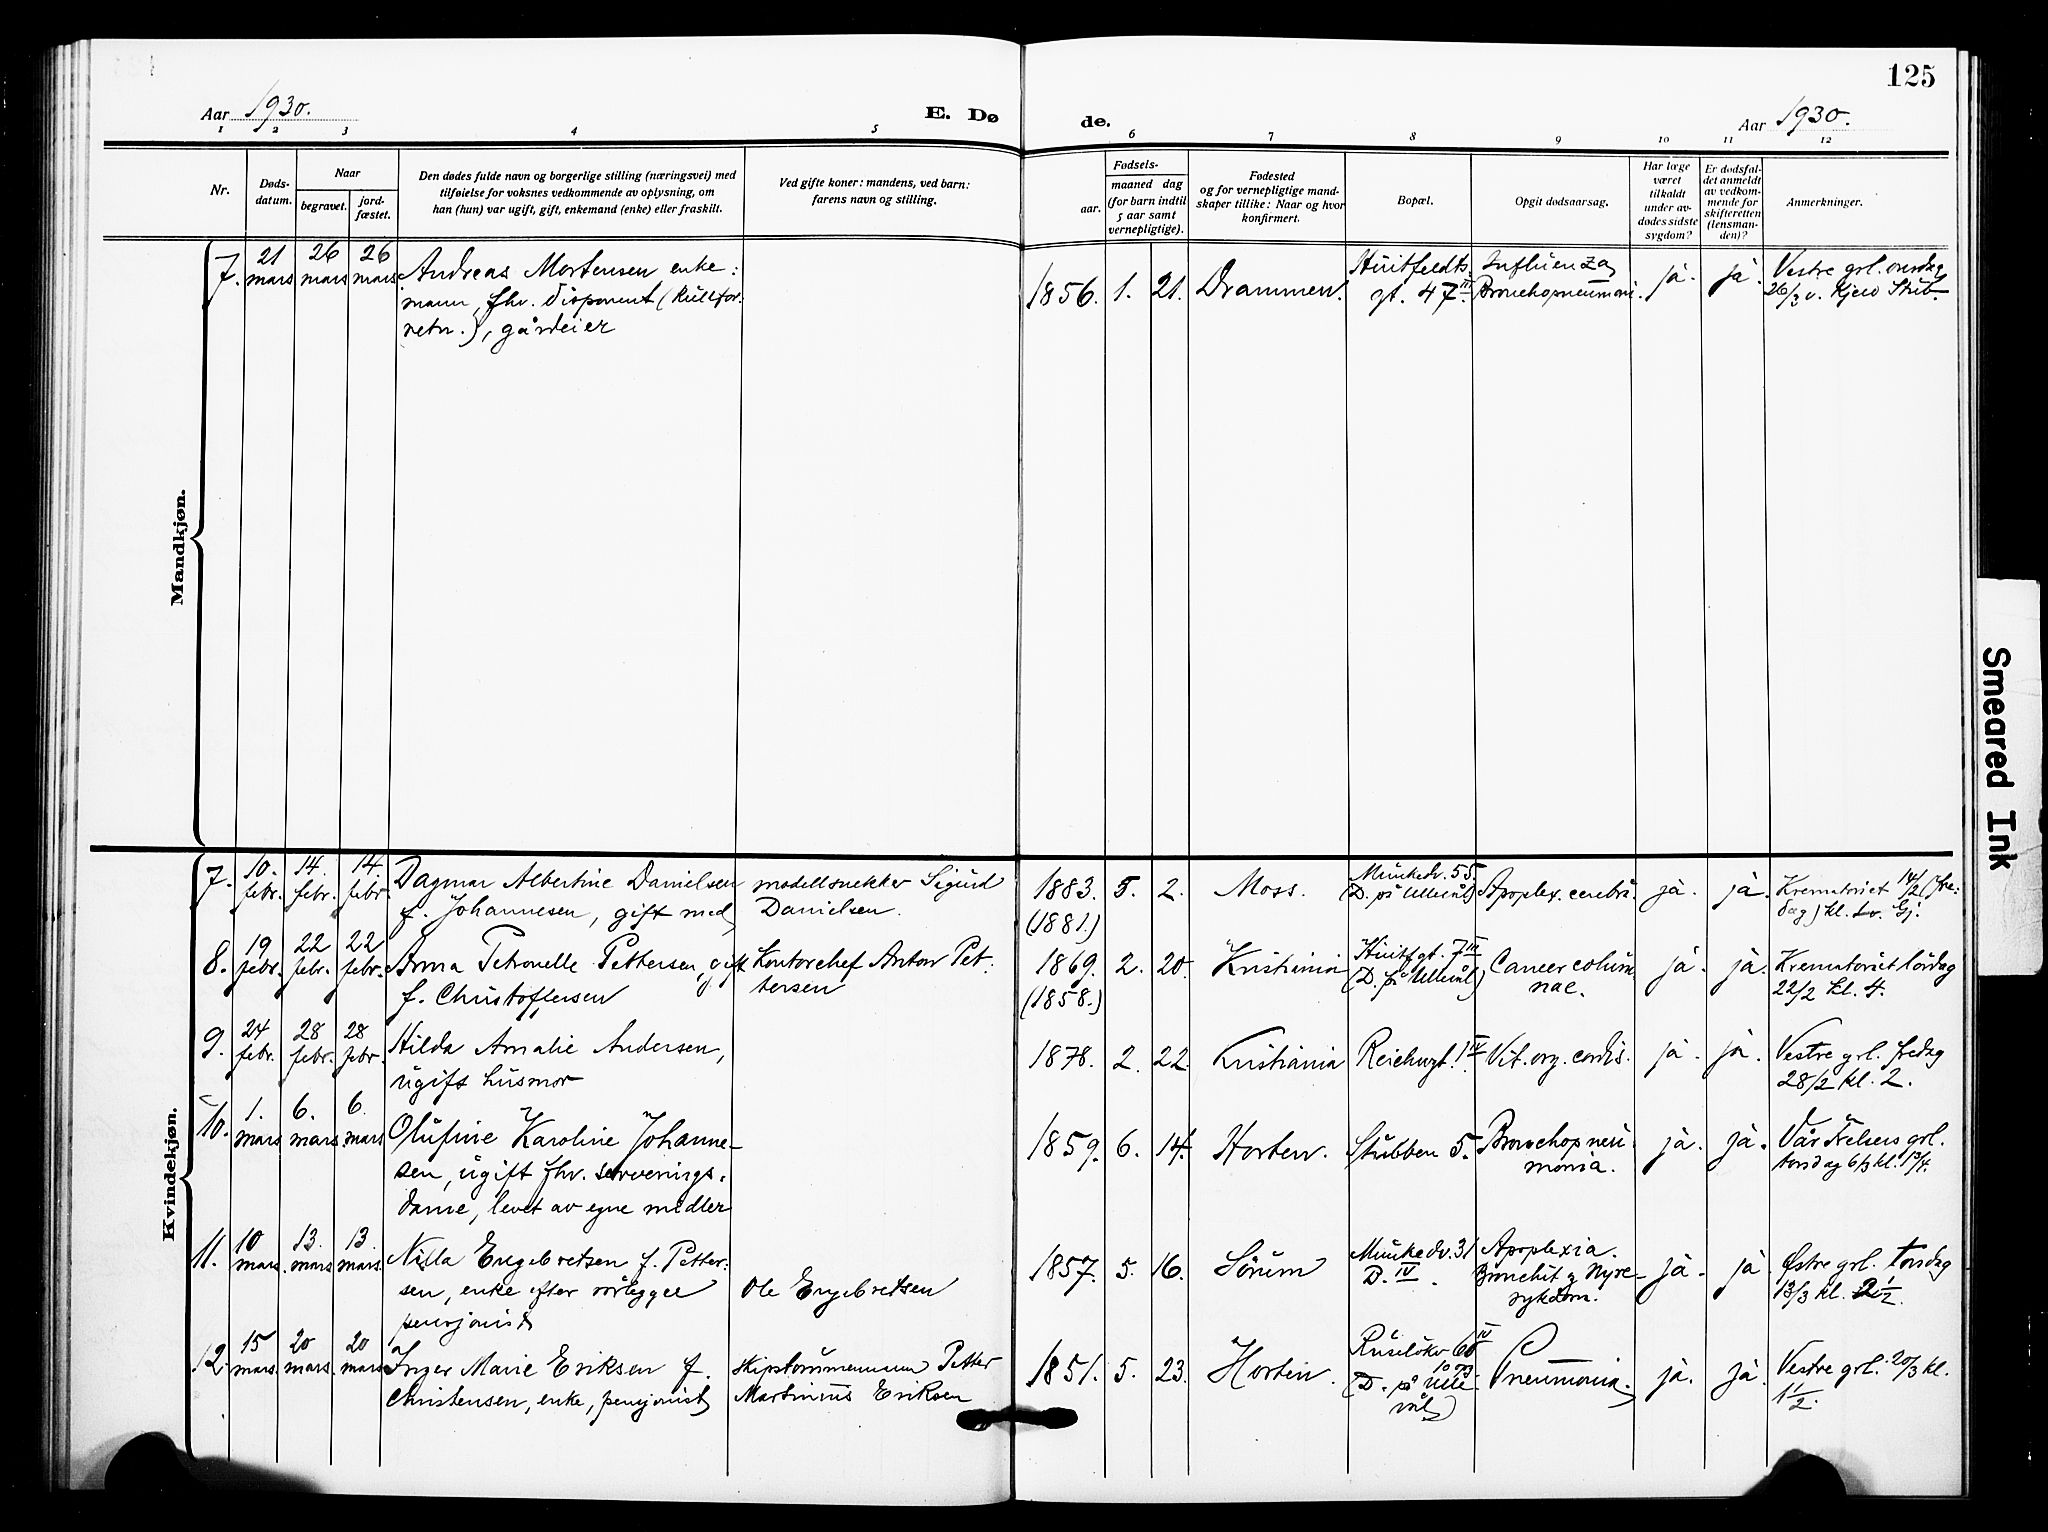 125
Aar 1930.
E. Dø
de.
Aar 1930.
1 2 3 4 5
6 7 8 9 10 11 12
Nr.
Døds-
datum.
Naar
begravet.
jord-
fæstet.
Den dødes fulde navn og borgerlige stilling (næringsvei) med
tilføielse for voksnes vedkommende av oplysning, om
han (hun) var ugift, gift, enkemand (enke) eller fraskilt.
Ved gifte koner: mandens, ved barn:
farens navn og stilling.
Fødsels-
aar.
maaned dag
(for barn indtil
5 aar samt
vernepligtige).
Fødested
og for vernepligtige mand-
skaper tillike: Naar og hvor
konfirmert.
Bopæl.
Opgit dødsaarsag.
Har læge
været
tilkaldt
under av-
dødes sidste
sygdom?
Er dødsfal-
det anmeldt
av vedkom-
mende for
skifteretten
(lensman-
den)?
Anmerkninger.
Mandkjøn.
7.
21
mars
26
mars
26
mars
Andreas Mortensen enke:
mann, fhv. disponent (kullfor-
retn.), gårdeier
1856. 1. 21.
Drammen.
Huitfeldts
gt. 47 III
Influenza,
Bronchopneumoni.
ja.
ja.
Vestre grl. onsdag
26/3 v. Kjeld Stub.
Kvindekjøn.
7.
10.
febr.
14.
febr.
14.
febr.
Dagmar Albertine Danielsen
f. Johannesen, gift med
modellsnekker Sigurd
Danielsen.
1883. 5. 2.
(1881.)
Moss.
Munkedv. 55.
(D. på Ullevål)
Apoplex. cerebri.
ja.
ja.
Krematoriet 14/2 (fre:
dag) kl. 1 v. Gj.
8.
19
febr.
22
febr.
22
febr.
Anna Petronelle Pettersen, gift
f. Christoffersen
Kontorchef Anton Pet:
tersen
1869. 2. 20.
(1858.)
Kristiania
Huitf.gt. 7 III
(D. på Ullevål)
Cancer colum
nae.
ja.
ja.
Krematoriet lördag
22/2 kl. 4.
9.
24
febr.
28
febr.
28
febr.
Hilda Amalie Andersen,
ugift husmor
1878. 2. 22.
Kristiania
Reichwgt. 1 IV
Vit. org. cordis.
ja.
ja.
Vestre grl. fredag
28/2 kl. 2.
10.
1.
mars
6.
mars
6.
mars
Olufine Karoline Johanne-
sen, ugift fhv. serverings-
dame, levet av egne midler
1859. 6. 14.
Horten.
Stubben 5.
Bronchopneu-
monia.
ja.
ja.
Vår Frelsers grl.
torsdag 6/3 kl. 1 3/4.
11.
10
mars
13.
mars
13.
mars.
Nilla Engebretsen f. Petter:
sen, enke efter rörlegger
pensjonist
Ole Engebretsen
1857. 5. 16.
Sörum
Munkedv. 31
D. IV.
Apoplexia.
Bronchit og Nyre-
sykdom.
ja.
ja
Østre grl. torsdag
13/3 kl. 2 1/2.
12.
15
mars.
20
mars.
20
mars
Inger Marie Eriksen f.
Christensen, enke, pensjonist
skipstömmermann Petter
Martinius Eriksen
1851. 5. 23.
Horten.
Ruselökv 60 IV
(D. på Ulle-
vål)
Pneumonia.
ja.
ja.
Vestre grl. 20/3 kl.
1 1/2.
Smeared Ink